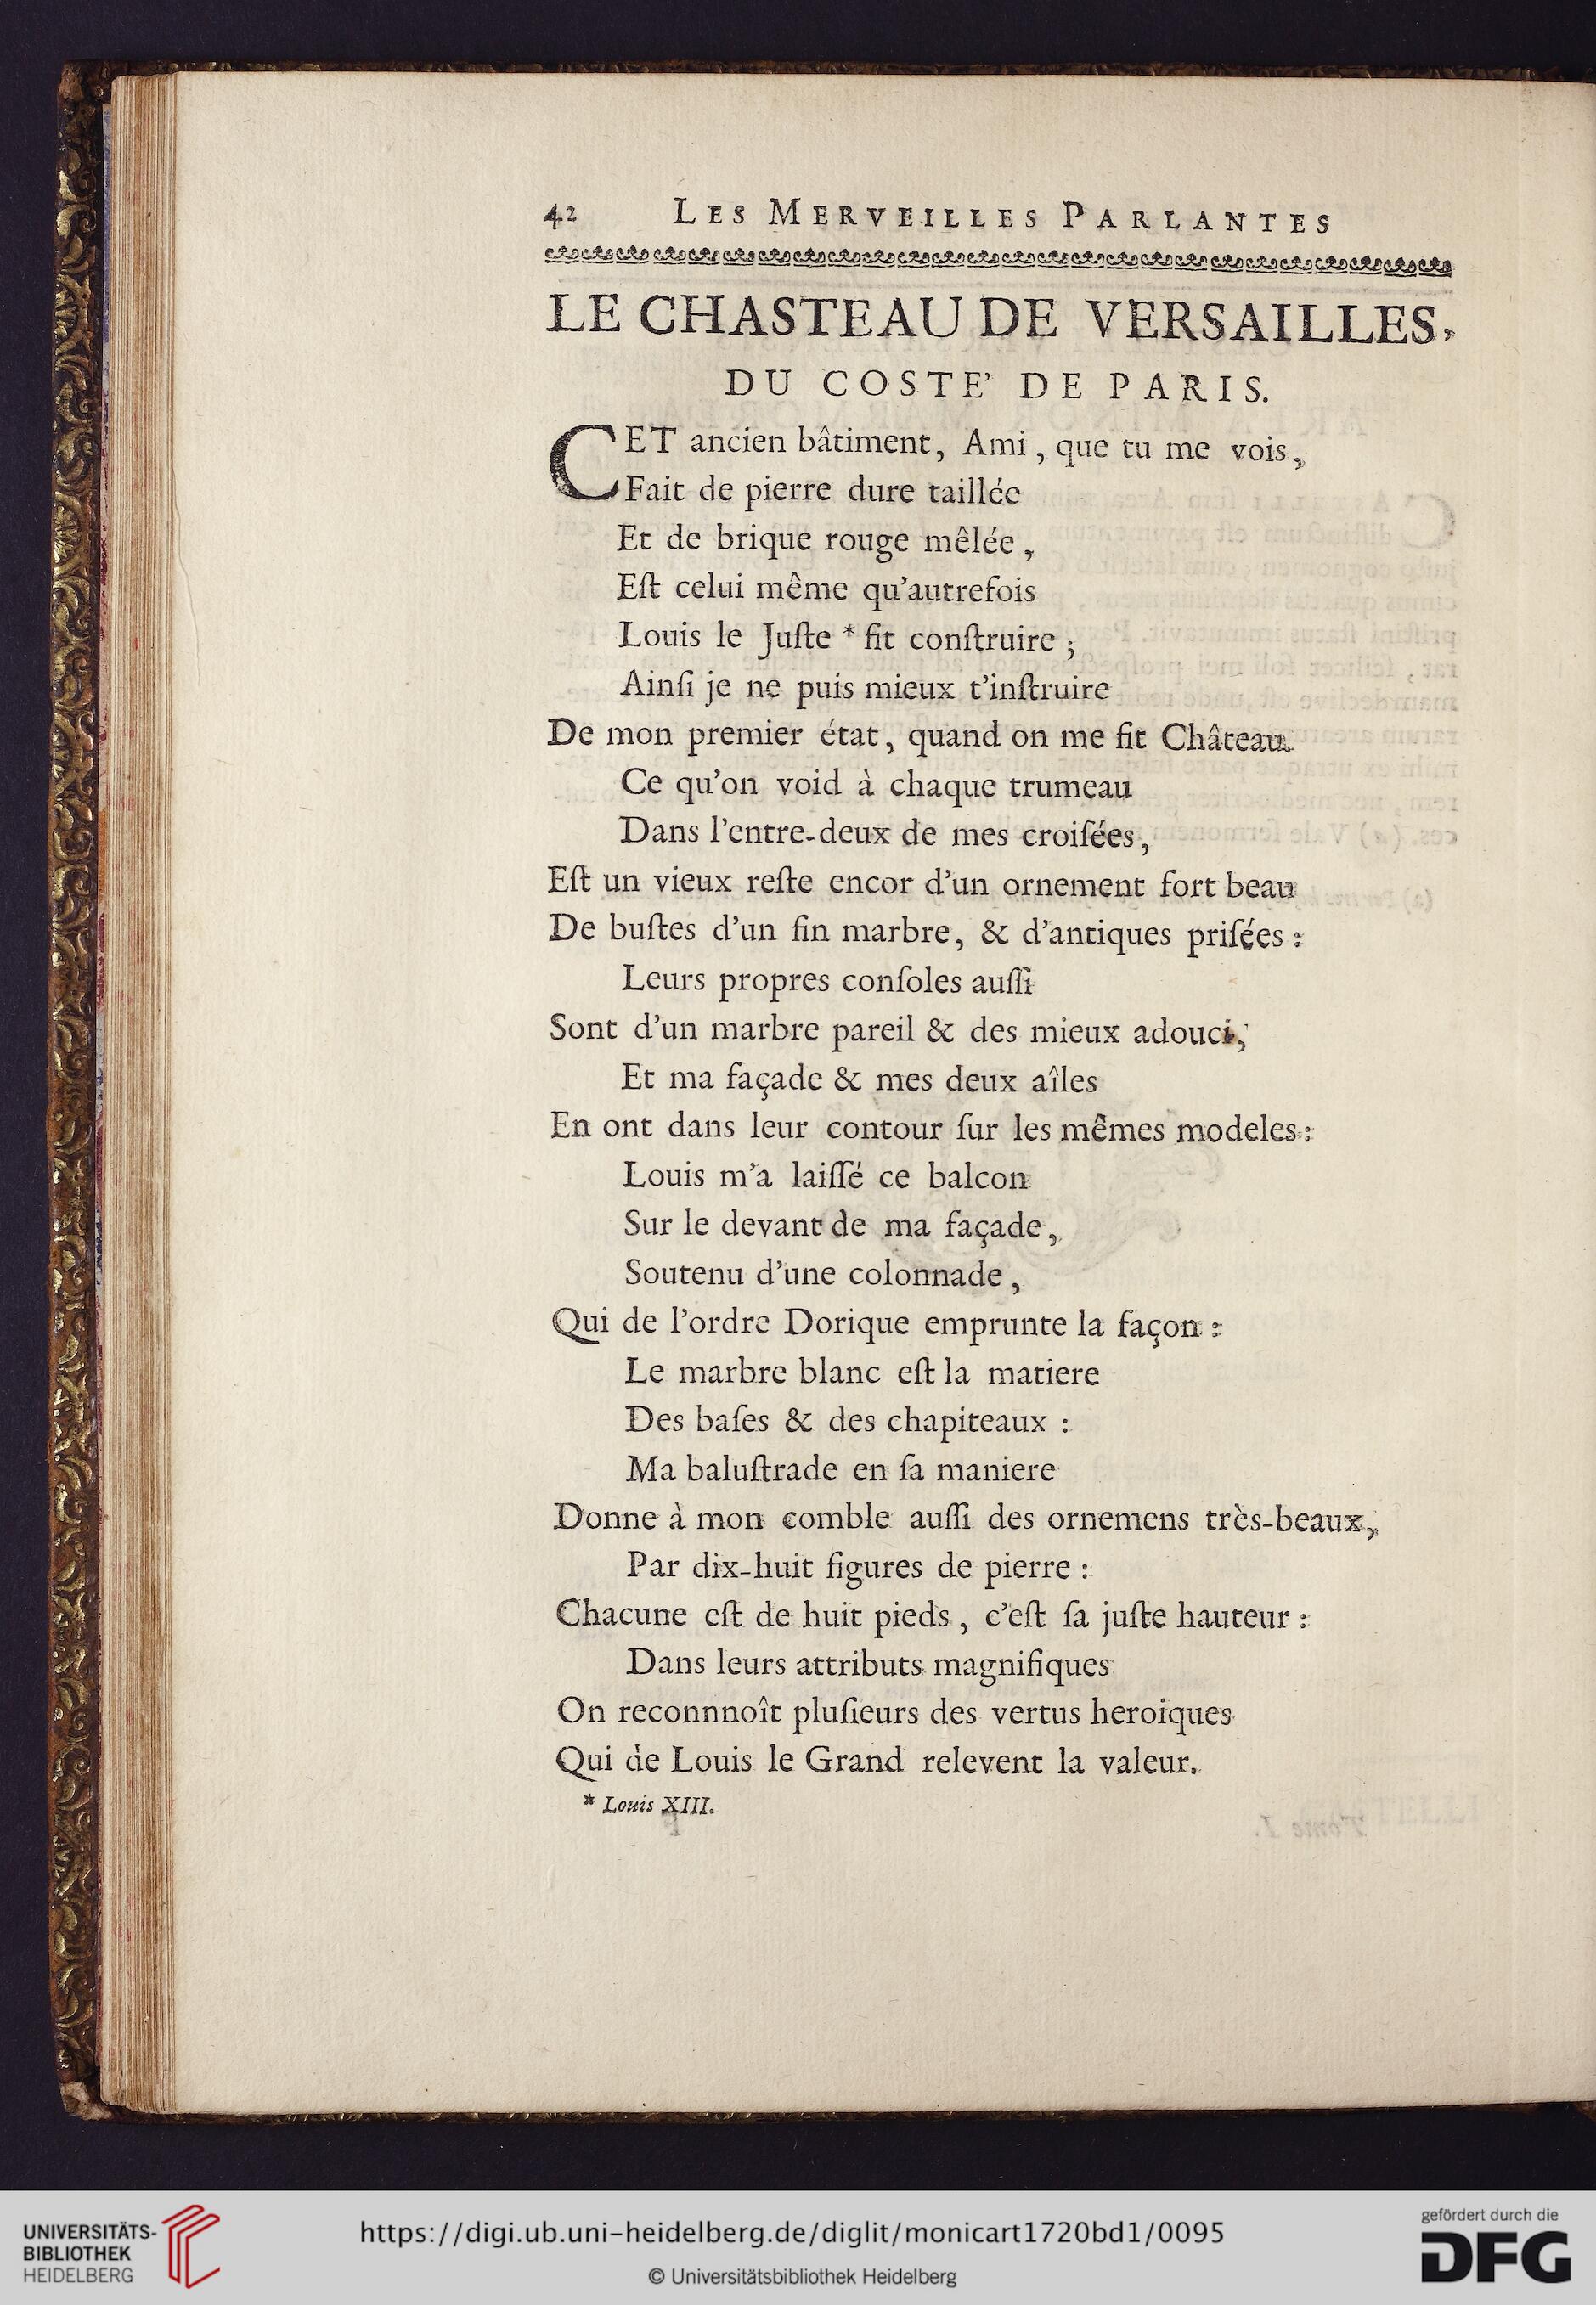 42 LES MERVEILLES PARLANTES
LE CHASTEAU DE VERSAILLES,
DU COSTE' DE PARIS.
CET ancien bâtiment, Ami, que tu me vois,
Fait de pierre dure taillée
Et de brique rouge mêlée,
Eſt celui même qu'autrefois
Louis le Juſte * fit conſtruire ;
Ainſi je ne puis mieux t'inſtruire
De mon premier état, quand on me fit Château.
Ce qu'on void à chaque trumeau
Dans l'entre-deux de mes croiſées,
Eſt un vieux reſte encor d'un ornement fort beau
De buſtes d'un fin marbre, & d'antiques priſées :
Leurs propres conſoles auſſi
Sont d'un marbre pareil & des mieux adouci,
Et ma façade & mes deux aîles
En ont dans leur contour ſur les mêmes modeles :
Louis m'a laiſſé ce balcon
Sur le devant de ma façade,
Soutenu d'une colonnade,
Qui de l'ordre Dorique emprunte la façon :
Le marbre blanc eſt la matiere
Des baſes & des chapiteaux :
Ma baluſtrade en ſa maniere
Donne à mon comble auſſi des ornemens très-beaux,
Par dix-huit figures de pierre :
Chacune eſt de huit pieds, c'eſt ſa juſte hauteur :
Dans leurs attributs magnifiques
On reconnnoît pluſieurs des vertus heroiques
Qui de Louis le Grand relevent la valeur.
* Louis XIII.
UNIVERSITÄTS-
BIBLIOTHEK
HEIDELBERG
https://digi.ub.uni-heidelberg.de/diglit/monicart1720bd1/0095
© Universitätsbibliothek Heidelberg
gefördert durch die
DFG